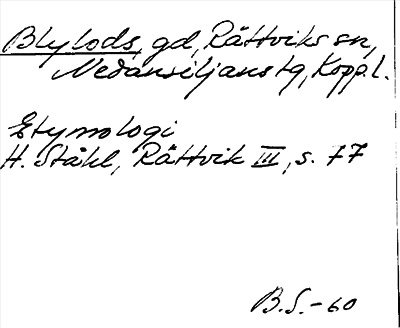 Blylods, gd, Rättviks sn,
Nedansiljans tg, Kopp. l.
Etymologi
H. Ståhl, Rättvik III, s. 77
B.S. - 60